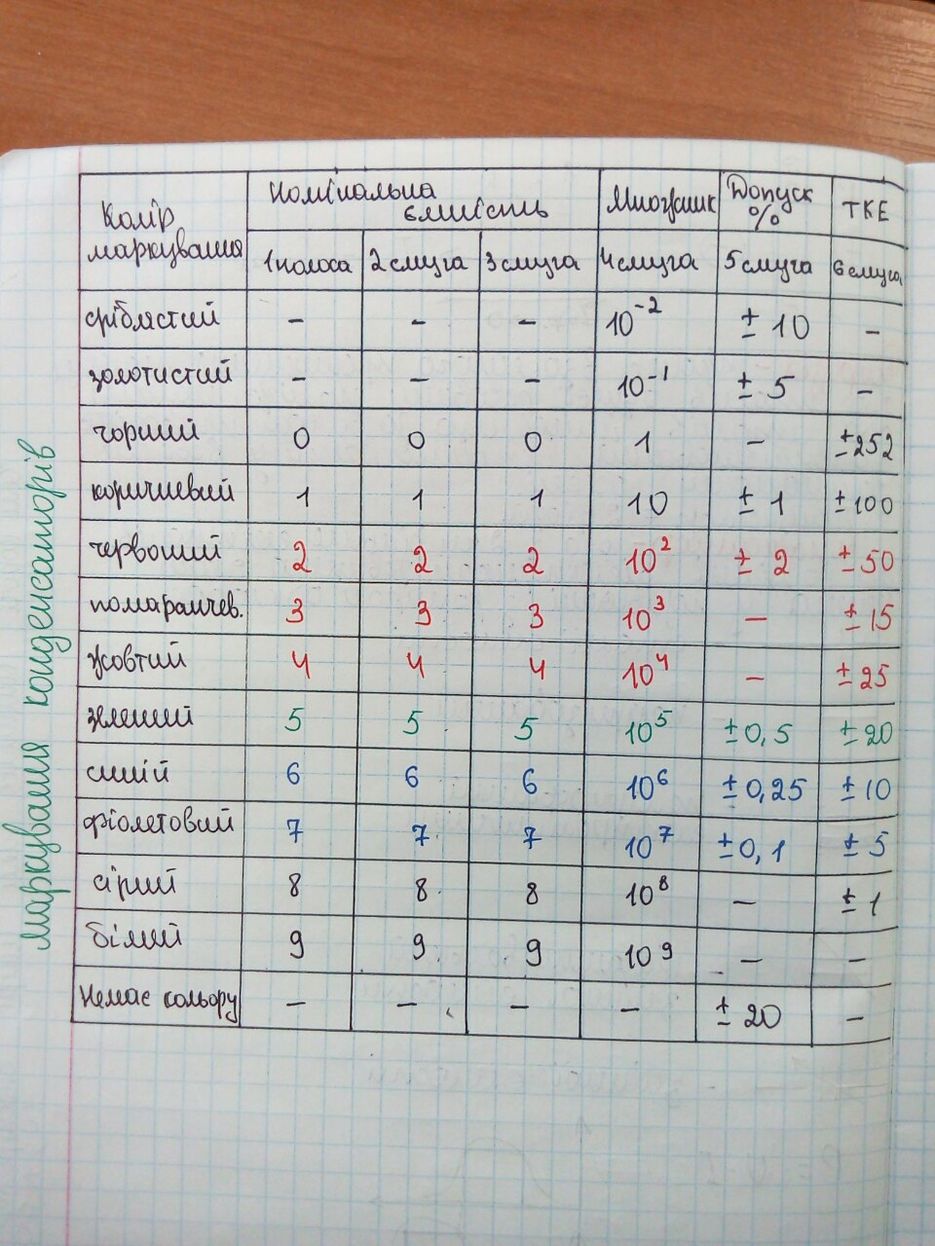 маркування конденсаторів
Колір маркування | Номінальна ємність | Множник | Допуск % | ТКЕ
1 полоса | 2 смуга | 3 смуга | 4 смуга | 5 смуга | 6 смуга
сріблястий | - | - | - | 10⁻² | ± 10 | -
золотистий | - | - | - | 10⁻¹ | ± 5 | -
чорний | 0 | 0 | 0 | 1 | - | ±252
коричневий | 1 | 1 | 1 | 10 | ± 1 | ±100
червоний | 2 | 2 | 2 | 10² | ± 2 | ±50
помаранчев. | 3 | 3 | 3 | 10³ | - | ±15
жовтий | 4 | 4 | 4 | 10⁴ | - | ±25
зелений | 5 | 5 | 5 | 10⁵ | ±0,5 | ±20
синій | 6 | 6 | 6 | 10⁶ | ±0,25 | ±10
фіолетовий | 7 | 7 | 7 | 10⁷ | ±0,1 | ±5
сірий | 8 | 8 | 8 | 10⁸ | - | ±1
білий | 9 | 9 | 9 | 10⁹ | - | -
Немає кольору | - | - | - | - | ± 20 | -